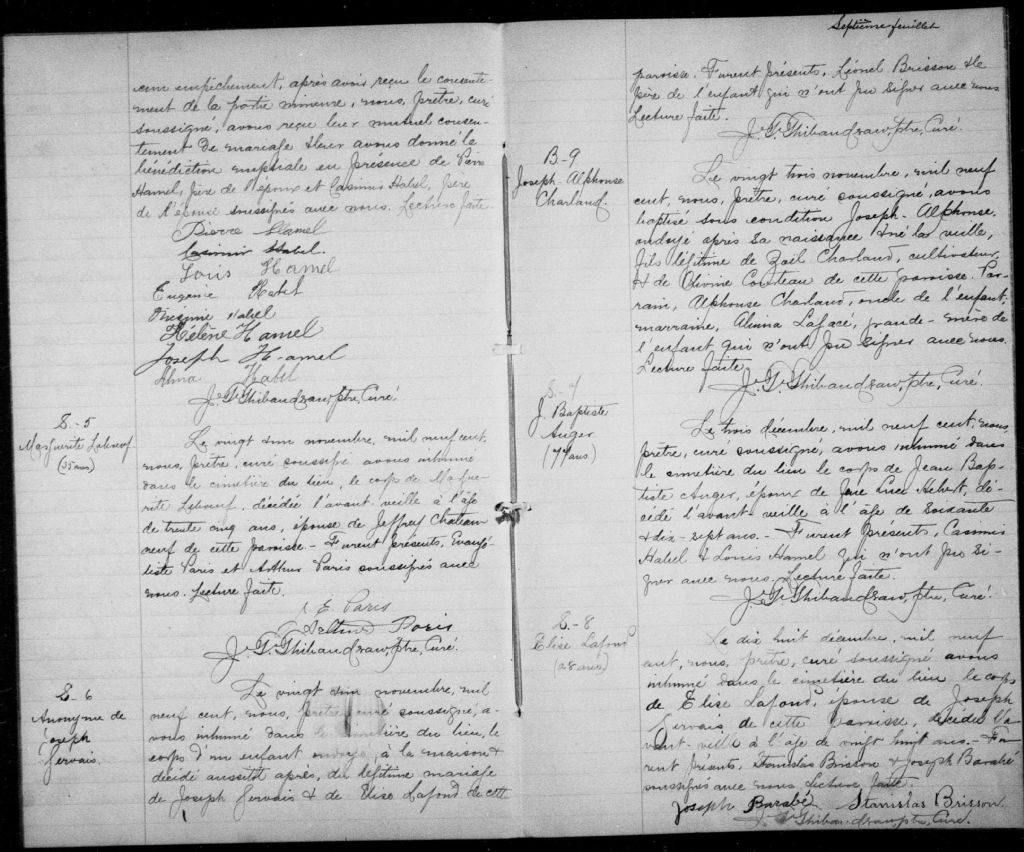 cun empêchement, après avoir reçu le consente-
ment de la partie mineure, nous, prêtre, curé
soussigné, avons reçu leur mutuel consen-
tement de mariage & leur avons donné la
bénédiction nuptiale en présence de
Hamel, père de l'époux et Casimir Habel, père
de l'épouse soussignés avec nous. Lecture faite.
Pierre Hamel
Casimir Habel.
Louis Hamel
Eugénie Habel
Habel
Hélène Hamel
Joseph Hamel
Alma Habel
J. G. Thibaudeau, ptre, Curé.
S-5
Marguerite Leboeuf
(35 ans)
Le vingt un novembre, mil neuf cent,
nous, prêtre, curé soussigné avons inhumé
dans le cimetière du lieu, le corps de Margue-
rite Leboeuf, décédée l'avant-veille à l'âge
de trente cinq ans, épouse de Jeffrey Chateau
neuf de cette paroisse. - Furent présents, Evangé-
liste Paris et Arthur Paris soussignés avec
nous. Lecture faite.
E. Paris
Arthur Paris
J. G. Thibaudeau, ptre, Curé.
S-6
Anonyme de
Joseph
Gervais.
Le vingt un novembre, mil
neuf cent, nous, prêtre curé soussigné, a-
vons inhumé dans le cimetière du lieu, le
corps d'un enfant ondoyé, à la maison &
décédé aussitôt après, du légitime mariage
de Joseph Gervais & de Elise Lafond de cette
Septième feuillet
paroisse. Furent présents, Léonel Brisson & le
père de l'enfant qui n'ont pu signer avec nous
Lecture faite.
J. G. Thibaudeau, ptre, Curé.
B-9
Joseph-Alphonse
Charland.
Le vingt trois novembre, mil neuf
cent, nous, prêtre, curé soussigné avons
baptisé sous condition Joseph-Alphonse,
ondoyé après sa naissance & né la veille,
fils légitime de Zoël Charland, cultivateur
& de Olivine Courteau de cette paroisse. Par-
rain, Alphonse Charland, oncle de l'enfant;
marraine, grande-mère de
l'enfant qui n'ont pu signer avec nous.
Lecture faite
J. G. Thibaudeau, ptre, Curé.
S-7
J. Baptiste
Auger
(77 ans)
Le trois décembre, mil neuf cent, nous
prêtre, curé soussigné, avons inhumé dans
le cimetière du lieu le corps de Jean Bap-
tiste Auger, époux de feue Luce Hébert, dé-
cédé l'avant-veille à l'âge de soixante
& dix-sept ans. - Furent présents, Casimir
Habel & Louis Hamel qui n'ont pu si-
gner avec nous. Lecture faite.
J. G. Thibaudeau, ptre, Curé.
S-8
Elise Lafond
(28 ans)
Le dix huit décembre, mil neuf
cent, nous, prêtre, curé soussigné avons
inhumé dans le cimetière du lieu le corps
de Elise Lafond, épouse de Joseph
Gervais de cette paroisse, décédée l'a-
vant-veille à l'âge de vingt huit ans. - Fu-
rent présents, Stanislas Brisson & Joseph Barabé
soussignés avec nous Lecture faite.
Joseph Barabé Stanislas Brisson
J. G. Thibaudeau, ptre, Curé.